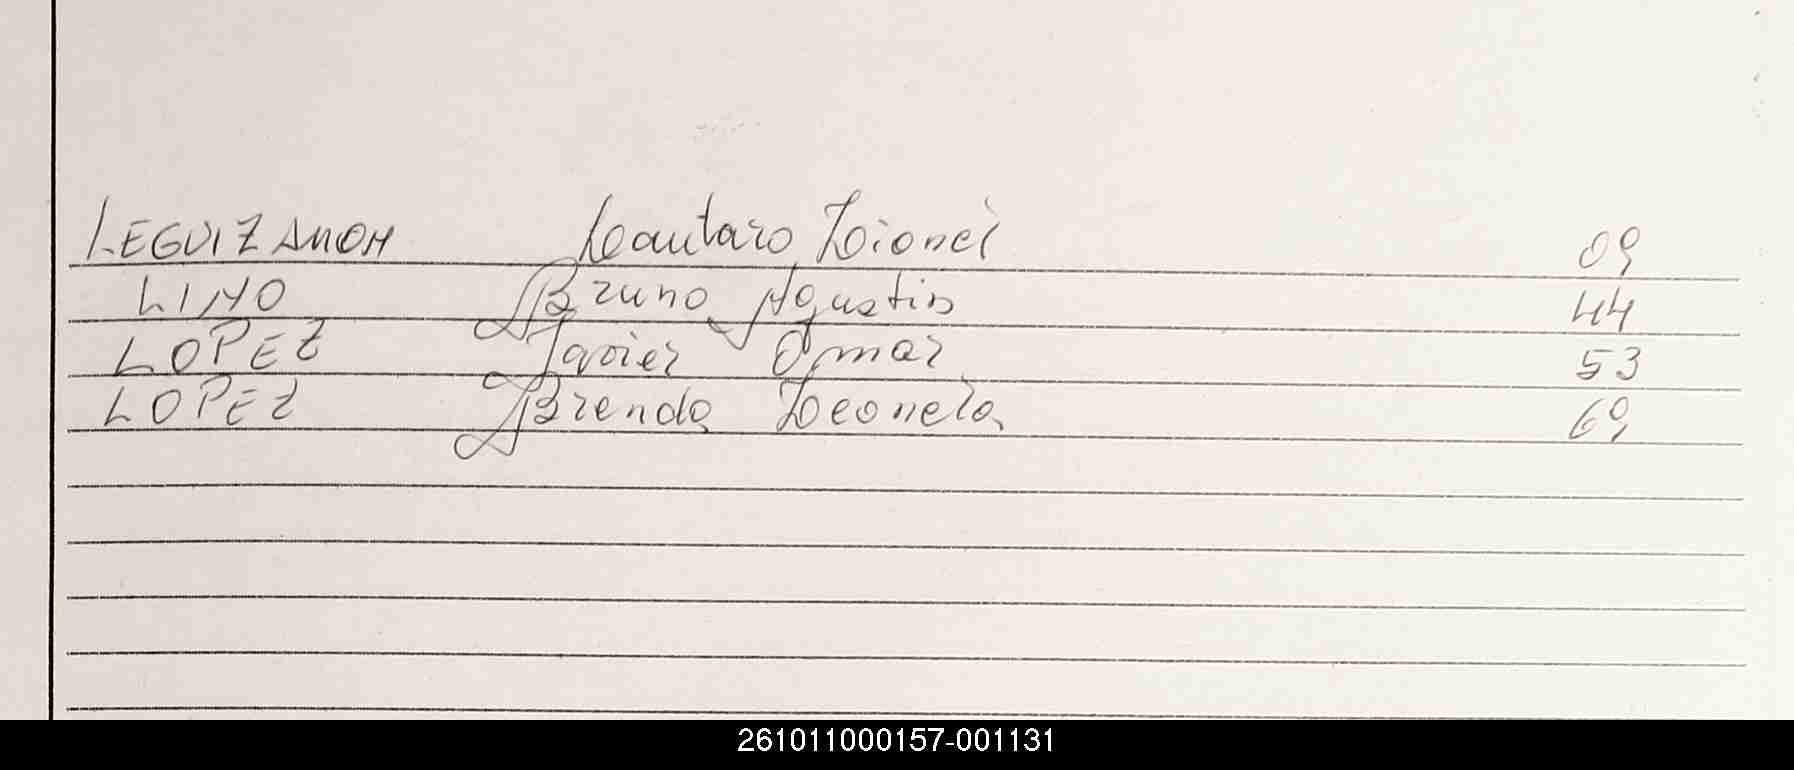 LEGUIZAMON Lautaro Lionel 09
LINO Bruno Agustin 44
LOPEZ Javier Omar 53
LOPEZ Brenda Leonela 69
261011000157-001131